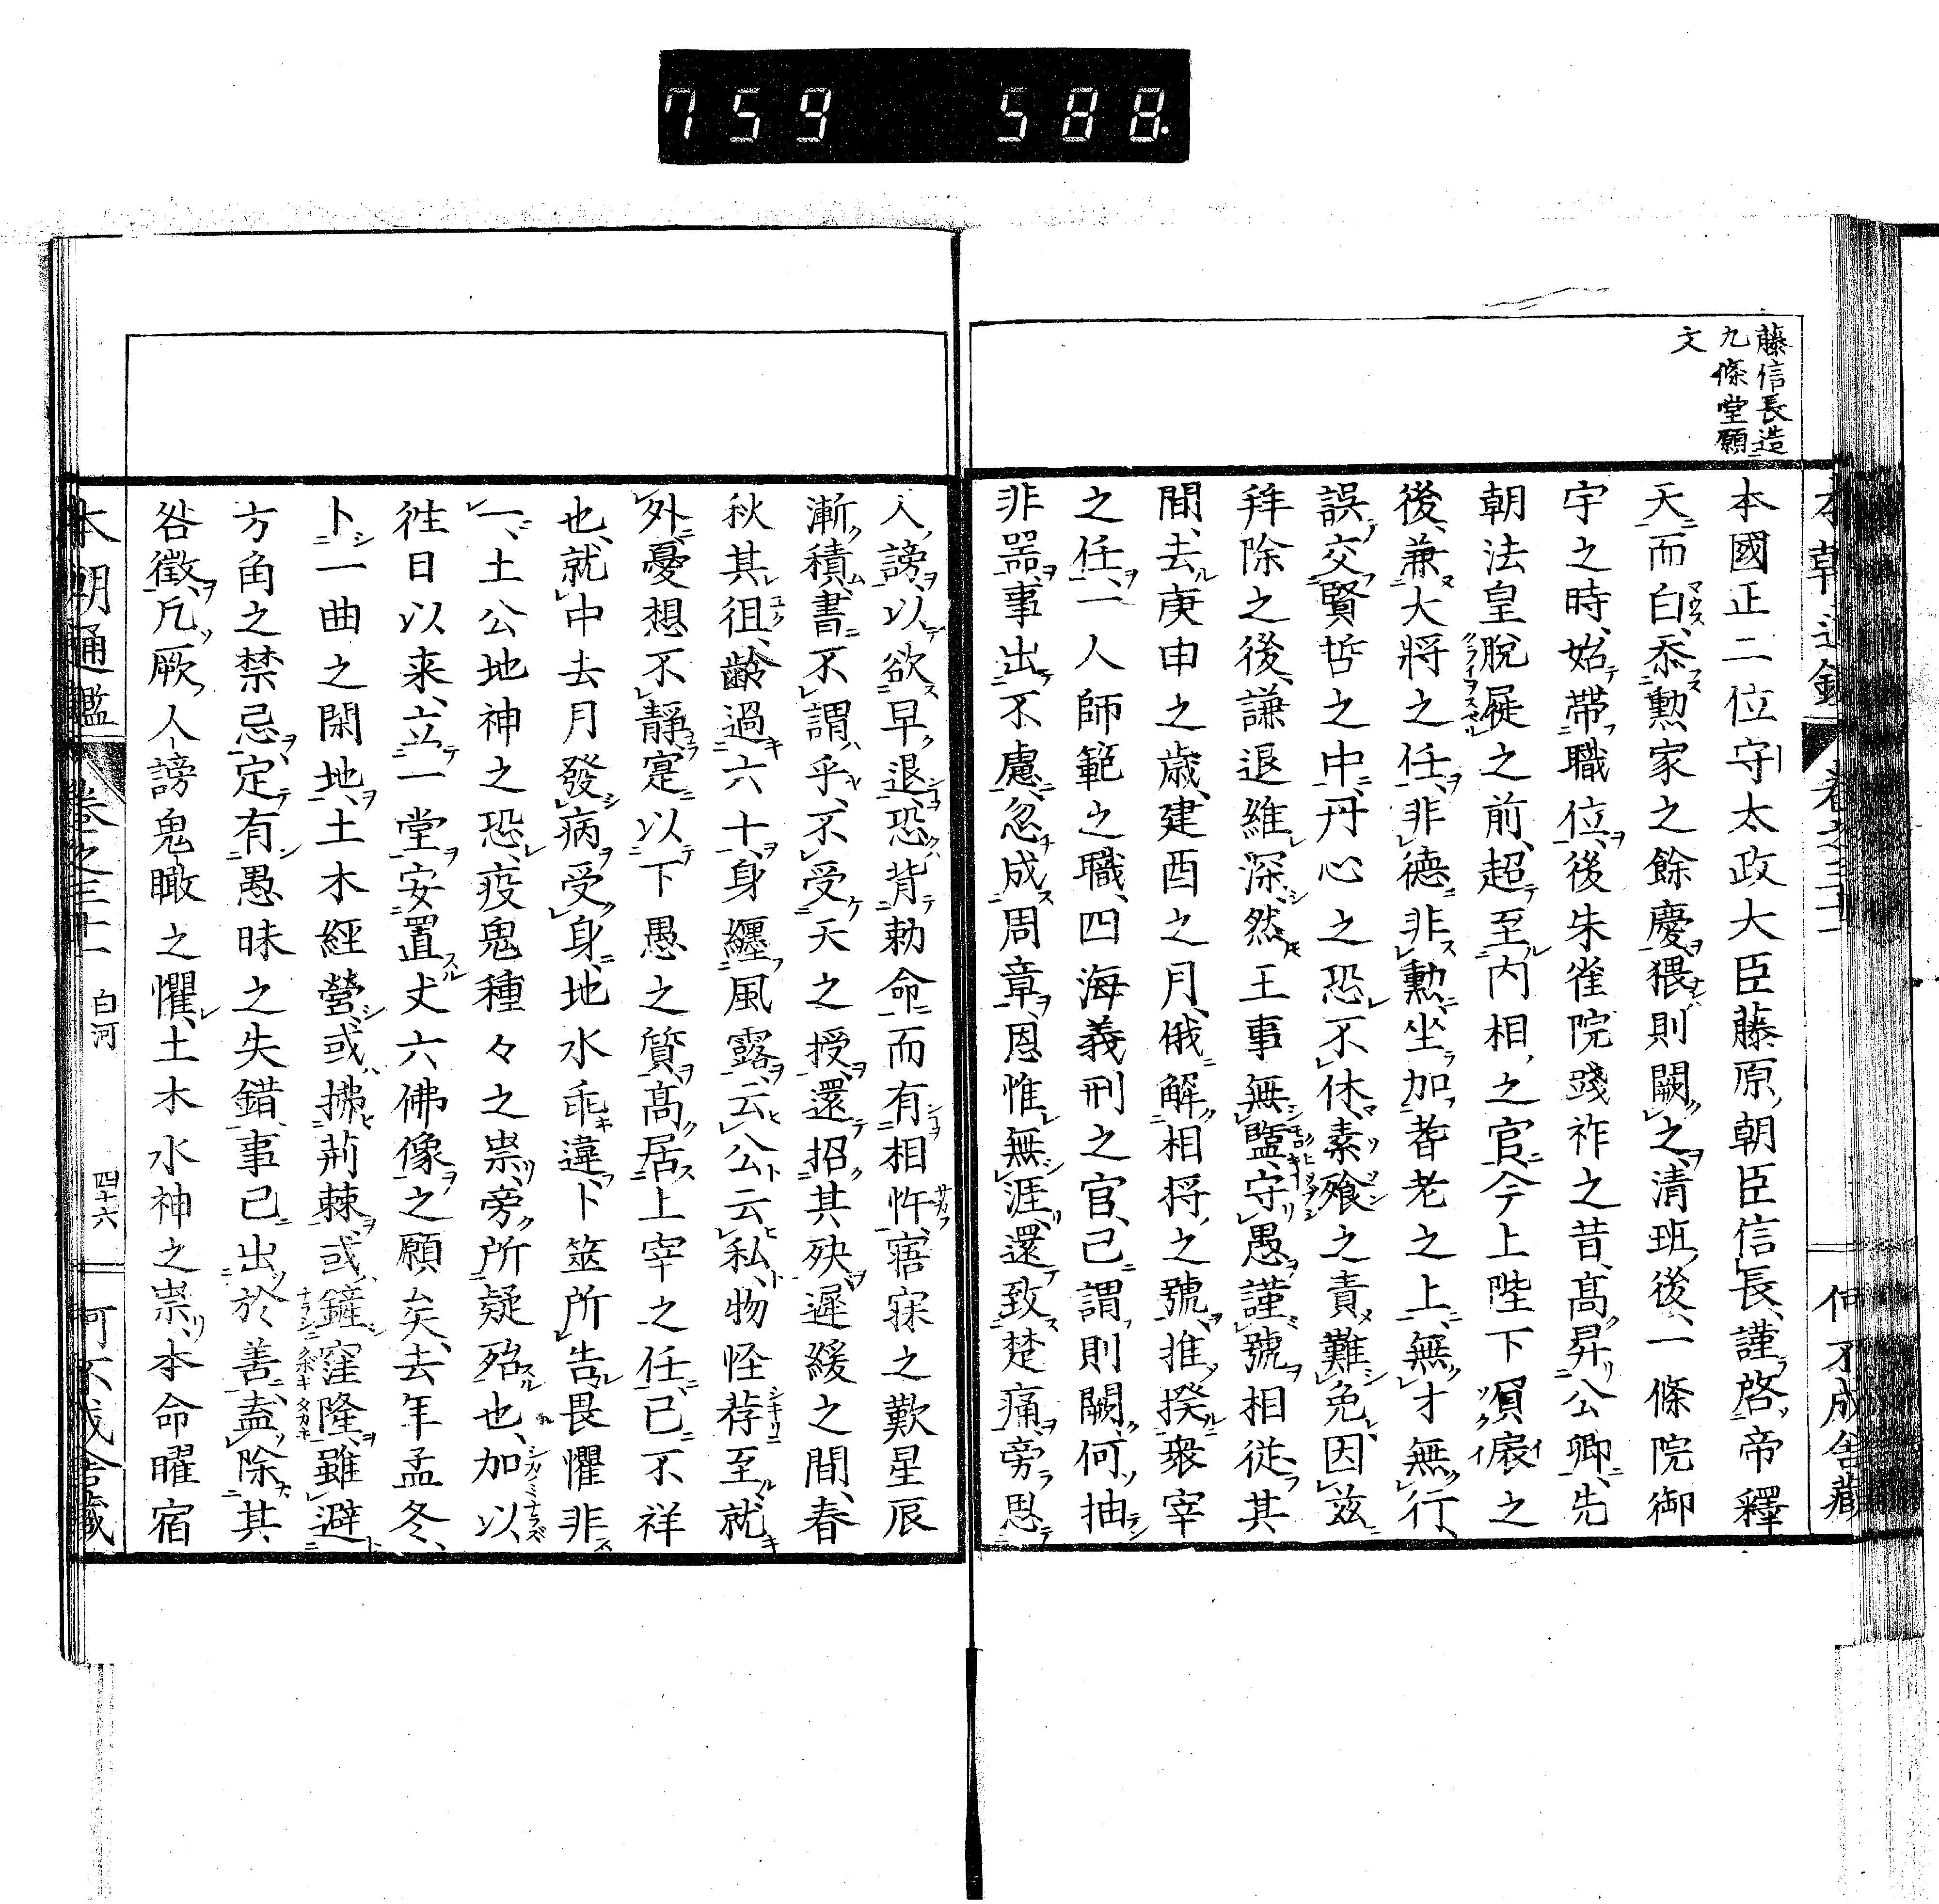 759 588.
藤信長造
九條堂願
文
本國正二位守太政大臣藤原朝臣信長、謹啓帝釋
天而白、忝勲家之餘慶、猥則闕之清班、後一條院御
宇之時、始帶職位、後朱雀院踐祚之昔、髙昇公卿、先
朝法皇脫屣之前、超至内相之官、今上陛下負扆之
後、兼大將之任、非德非勲、坐加耆老之上、無才無行、
誤交賢哲之中、丹心之恐不休、素飱之責難免、因茲
拜除之後、謙退維深、然王事無盬、守愚謹號相從其
間、去庚申之歳、建酉之月、俄解相将之號、推揆衆宰
之任、一人師範之職、四海義刑之官、已謂則闕、何抽
非噐、事出不慮、忽成周章、恩惟無涯、還致楚痛、旁思
人謗、以欲早退、恐背勅命而有相忤、寤寐之歎星辰
漸積、書不謂乎、不受天之授、還招其殃、遲緩之間、春
秋其徂、齡過六十、身纒風露、云公云私、物怪荐至、就
外憂想不靜、寔以下愚之質、髙居上宰之任、已不祥
也、就中去月發病受身、地水乖違、卜筮所告畏懼非
一、土公地神之恐、疫鬼種々之祟、旁所疑殆也、加以、
徃日以来、立一堂安置丈六佛像之願矣、去年孟冬、
卜一曲之閑地、土木經營、或拂荊棘、或鏟窪隆、雖避
方角之禁忌、定有愚昧之失錯、事已出於善、盍除其
咎徵、凡厥人謗鬼瞰之懼、土木水神之祟、本命曜宿
本朝通鑑 卷之三十一 白河 四十六 何不成舎藏